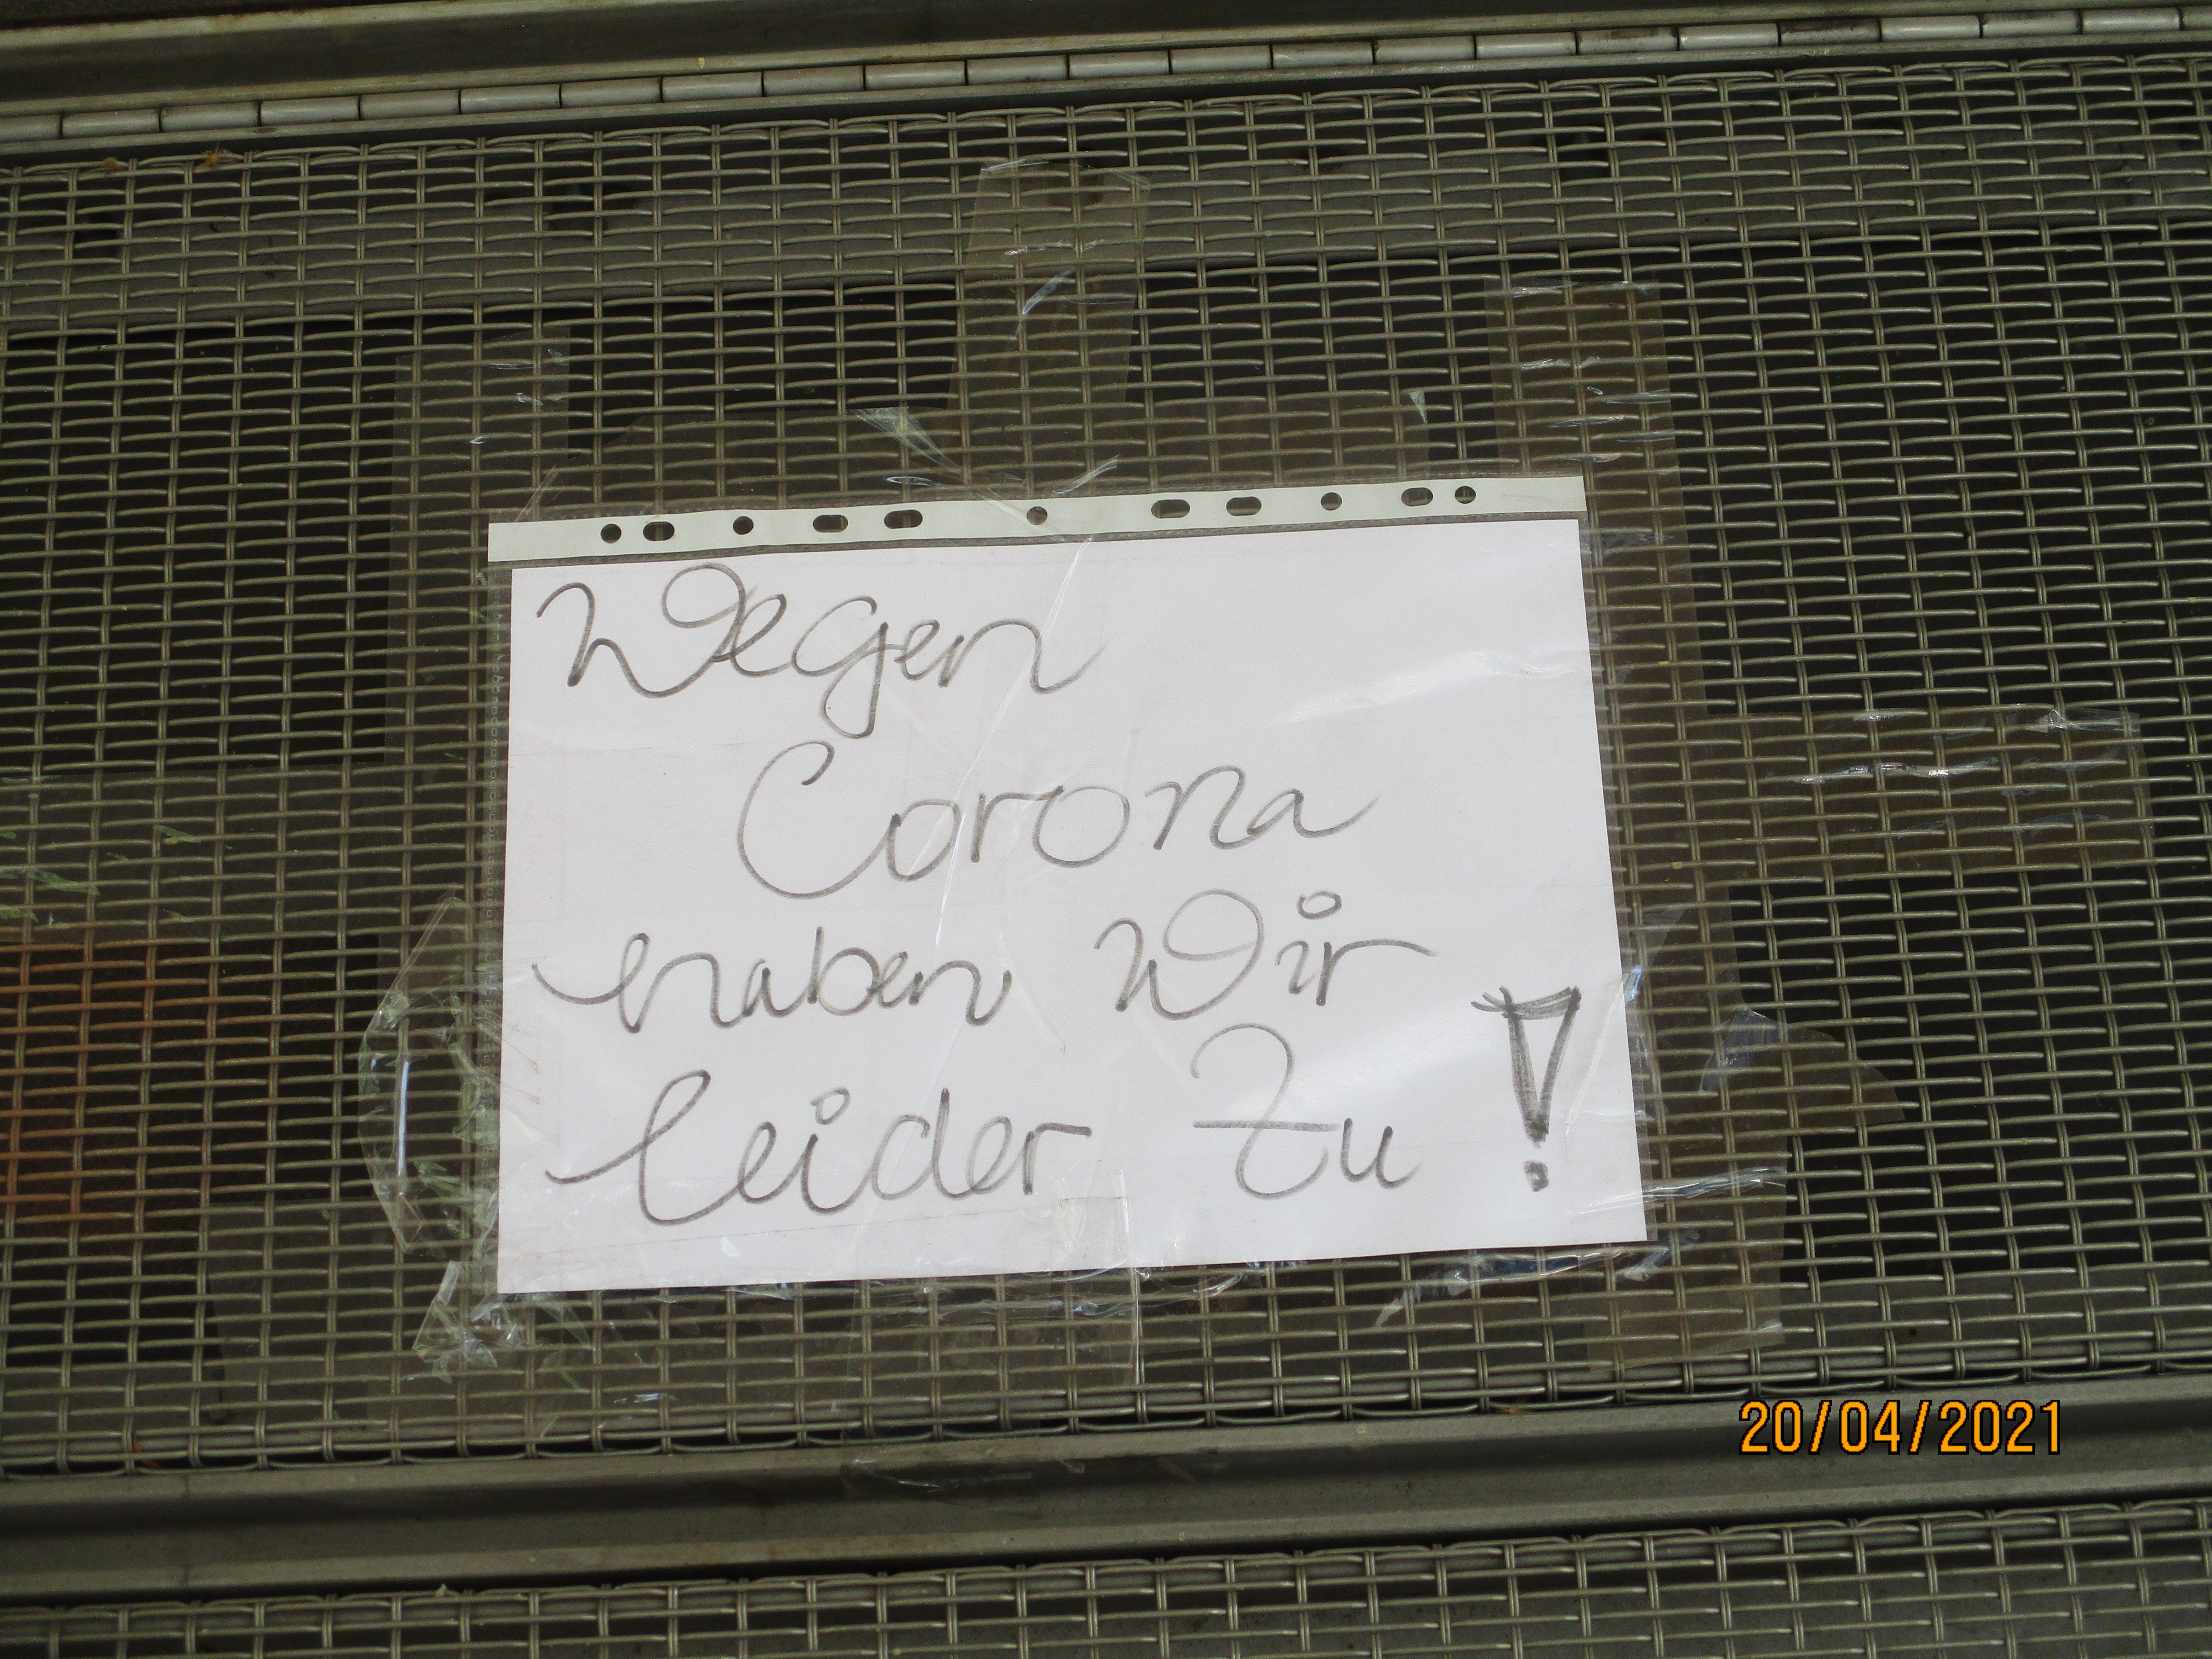 Wegen
Corona
haben Wir
leider zu!
20/04/2021